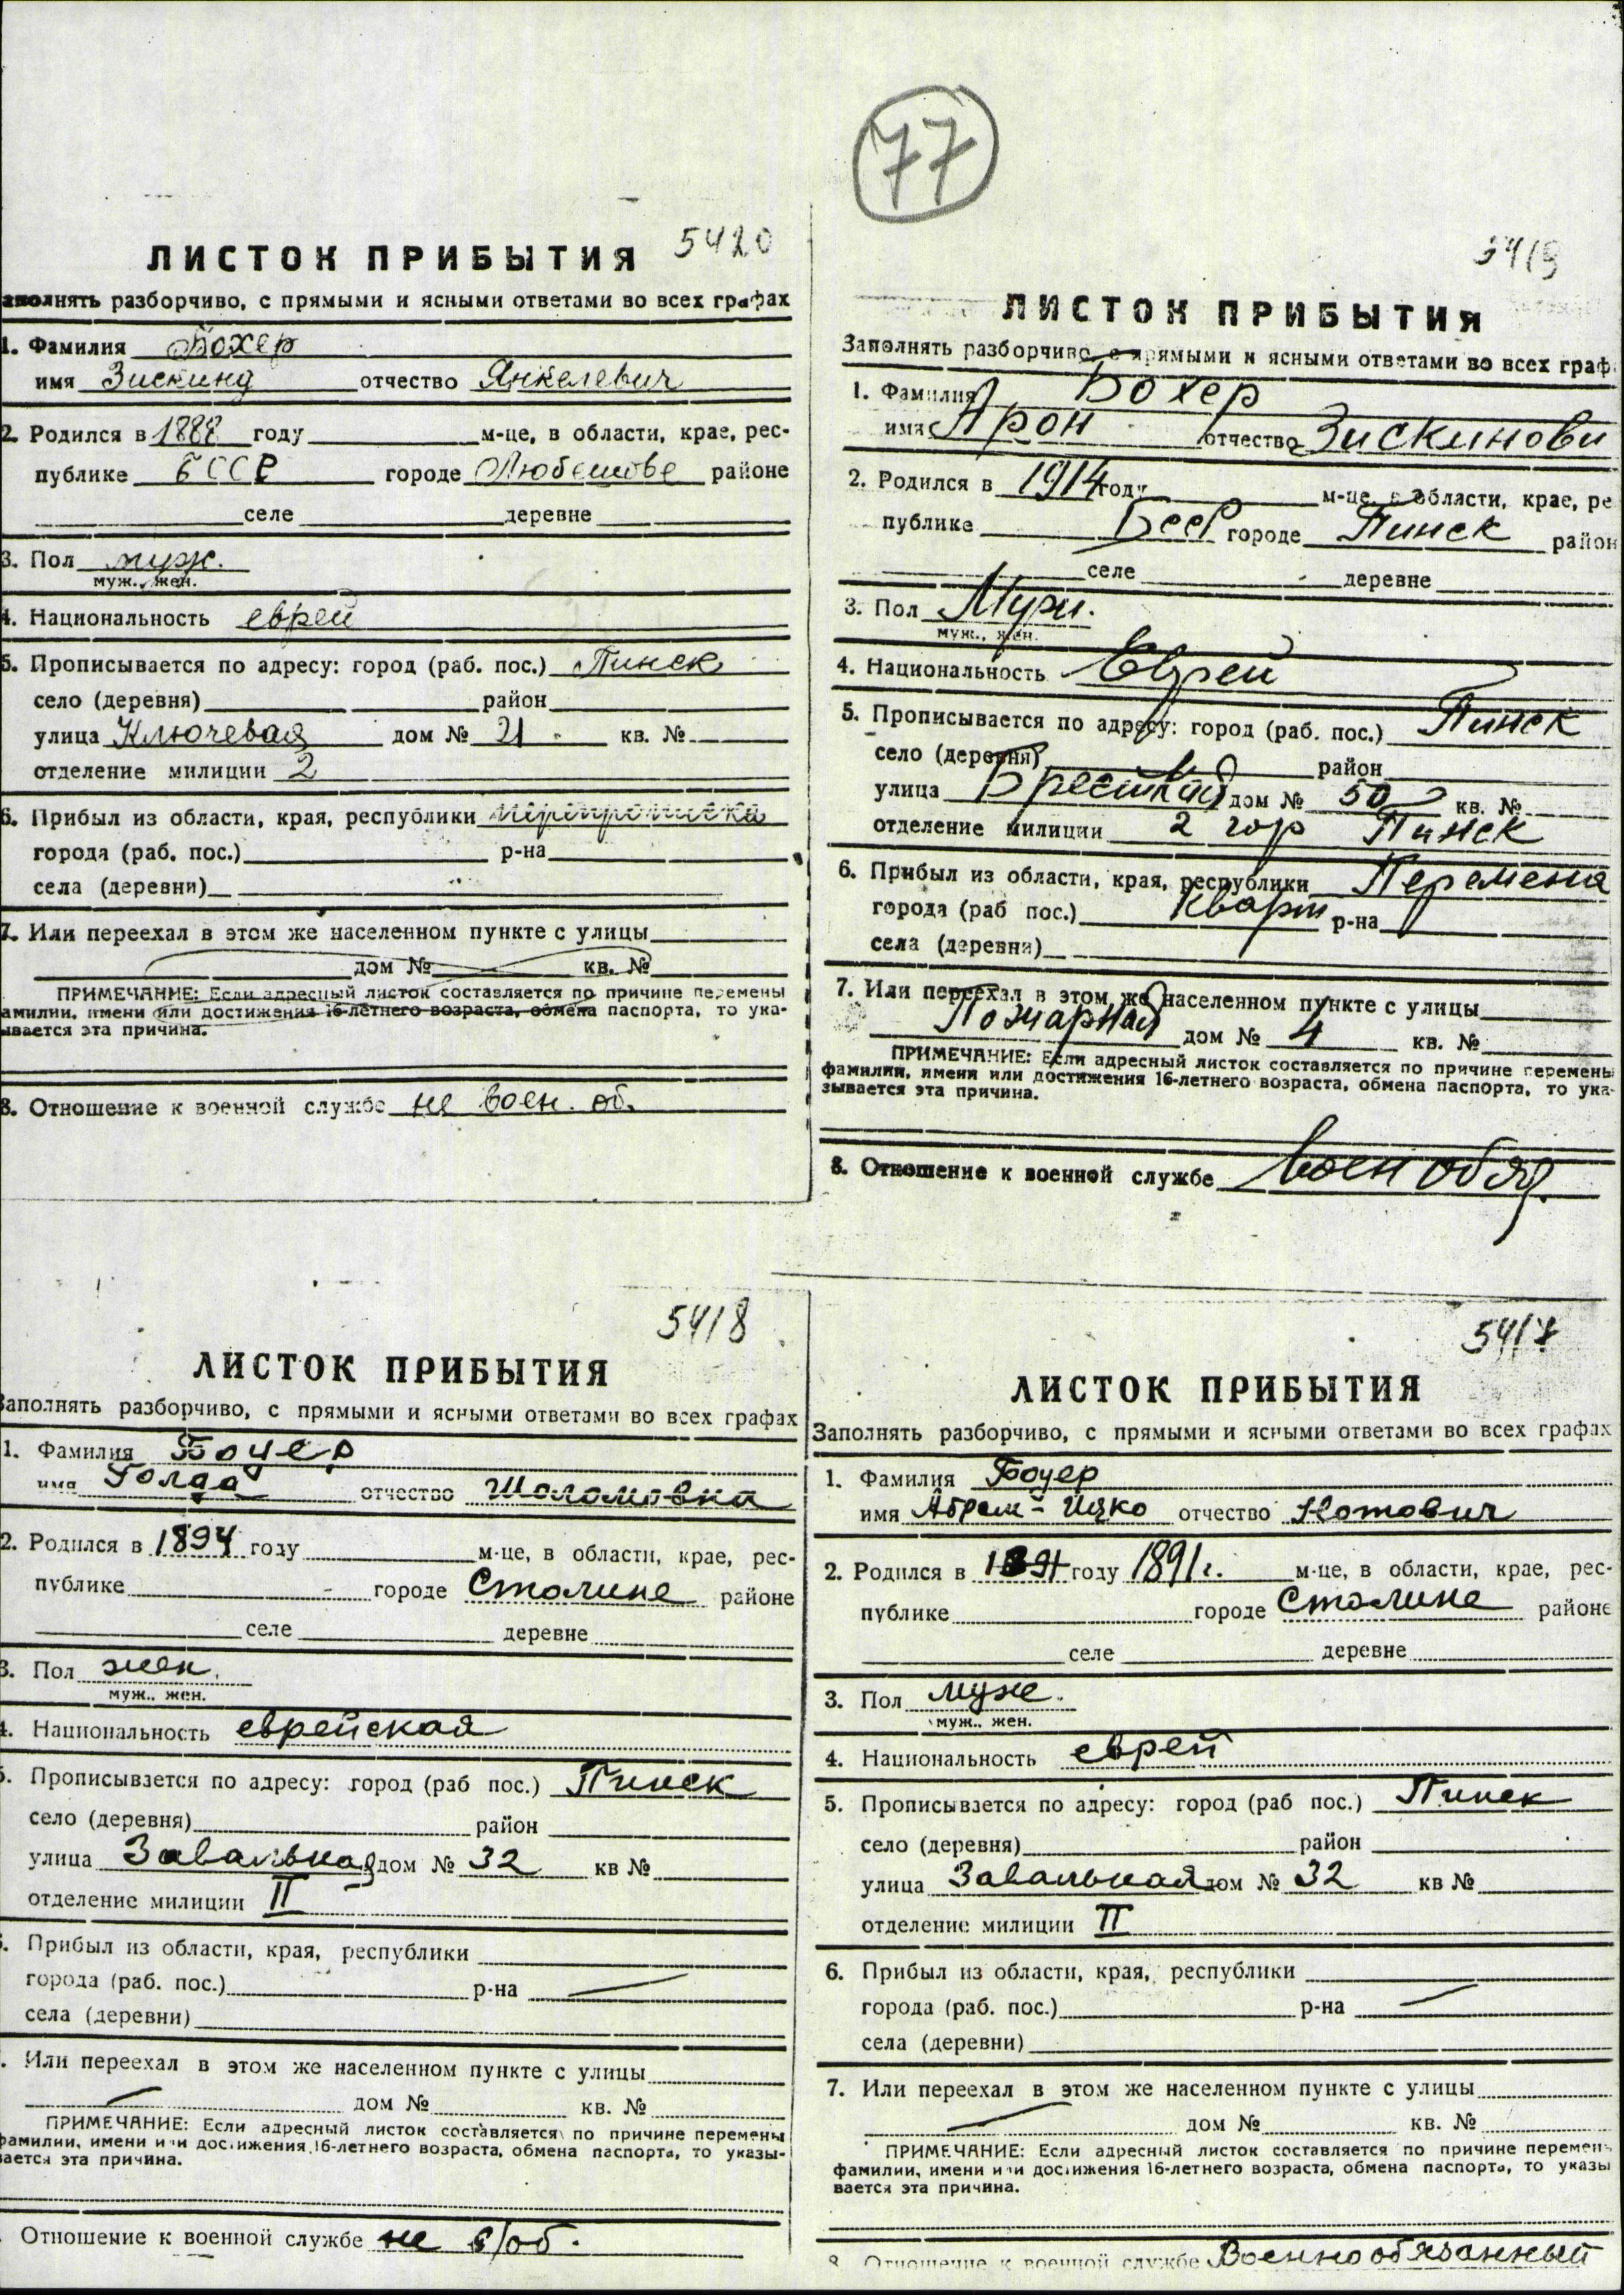 77
5420
ЛИСТОК ПРИБЫТИЯ
аполнять разборчиво, с прямыми и ясными ответами во всех графах
1. Фамилия Бохер
имя Зискинд отчество Янкелевич
2. Родился в 1888 году м-це, в области, крае, рес-
публике БССР городе Любешове районе
селе деревне
3. Пол муж.
муж., жен.
4. Национальность еврей
5. Прописывается по адресу: город (раб. пос.) Пинск
село (деревня) район
улица Ключевая дом № 21 кв. №
отделение милиции 2
6. Прибыл из области, края, республики перепрописка
города (раб. пос.) р-на
села (деревни)
7. Или переехал в этом же населенном пункте с улицы
дом № кв. №
ПРИМЕЧАНИЕ: Если адресный листок составляется по причине перемены
амилии, имени или достижения 16-летнего возраста, обмена паспорта, то ука-
ывается эта причина.
8. Отношение к военной службе не воен. об.
5419
ЛИСТОК ПРИБЫТИЯ
Заполнять разборчиво, с прямыми и ясными ответами во всех граф
1. Фамилия Бохер
имя Арон отчество Зискинови
2. Родился в 1914 году м-це, в области, крае, ре
публике Бсср городе Пинск район
селе деревне
3. Пол Муж.
муж., жен.
4. Национальность Еврей
5. Прописывается по адресу: город (раб. пос.) Пинск
село (деревня) район
улица Брестская дом № 50 кв. №
отделение милиции 2 гор Пинск
6. Прибыл из области, края, республики Перемена
города (раб пос.) кварт р-на
села (деревни)
7. Или переехал в этом же населенном пункте с улицы
Пожарная дом № 4 кв. №
ПРИМЕЧАНИЕ: Если адресный листок составляется по причине перемены
фамилии, имени или достижения 16-летнего возраста, обмена паспорта, то ука-
зывается эта причина.
8. Отношение к военной службе военобяз.
5418
ЛИСТОК ПРИБЫТИЯ
Заполнять разборчиво, с прямыми и ясными ответами во всех графах
1. Фамилия Боцер
имя Голда отчество Шоломовна
2. Родился в 1894 году м-це, в области, крае, рес-
публике городе Столине районе
селе деревне
3. Пол жен.
муж., жен.
4. Национальность еврейская
5. Прописывается по адресу: город (раб пос.) Пинск
село (деревня) район
улица Завальная дом № 32 кв №
отделение милиции II
. Прибыл из области, края, республики
города (раб. пос.) р-на
села (деревни)
. Или переехал в этом же населенном пункте с улицы
дом № кв. №
ПРИМЕЧАНИЕ: Если адресный листок составляется по причине перемены
фамилии, имени или достижения 16-летнего возраста, обмена паспорта, то указы-
вается эта причина.
Отношение к военной службе не в/об.
5417
ЛИСТОК ПРИБЫТИЯ
Заполнять разборчиво, с прямыми и ясными ответами во всех графах
1. Фамилия Боцер
имя Абрам-Ицко отчество Нотович
2. Родился в 1891 году 1891г. м-це, в области, крае, рес-
публике городе Столине районе
селе деревне
3. Пол муж.
муж., жен.
4. Национальность еврей
5. Прописывается по адресу: город (раб пос.) Пинск
село (деревня) район
улица Завальная дом № 32 кв №
отделение милиции II
6. Прибыл из области, края, республики
города (раб. пос.) р-на
села (деревни)
7. Или переехал в этом же населенном пункте с улицы
дом № кв. №
ПРИМЕЧАНИЕ: Если адресный листок составляется по причине перемен
фамилии, имени или достижения 16-летнего возраста, обмена паспорта, то указы
вается эта причина.
8. Отношение к военной службе Военнообязанный